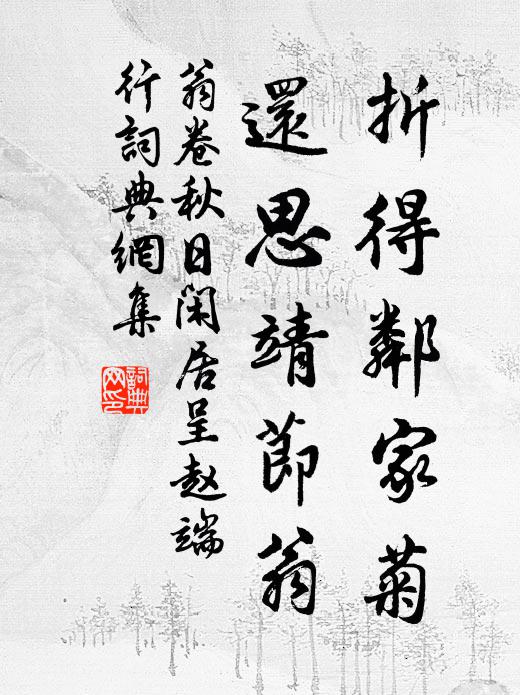 折得鄰家菊
還思靖節翁
翁卷秋日閑居呈赵端
行詞典網集
詞典
网印